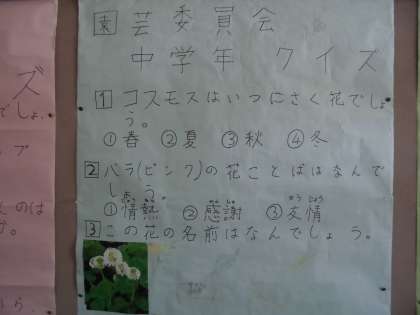 園芸委員会
中学年 クイズ
1 コスモスはいつにさく花でしょ
う。
①春 ②夏 ③秋 ④冬
2 バラ(ピンク)の花ことばはなんで
しょう。
①情熱 ②感謝 ③友情
3 この花の名前はなんでしょう。
ズ